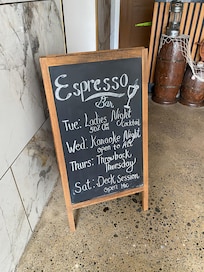 Espresso
Bar
Tue: Ladies Night
50% Off Cocktail
Wed: Karaoke Night
open to All
Thurs: Throwback
Thursday
Sat: Deck Session
open Mic